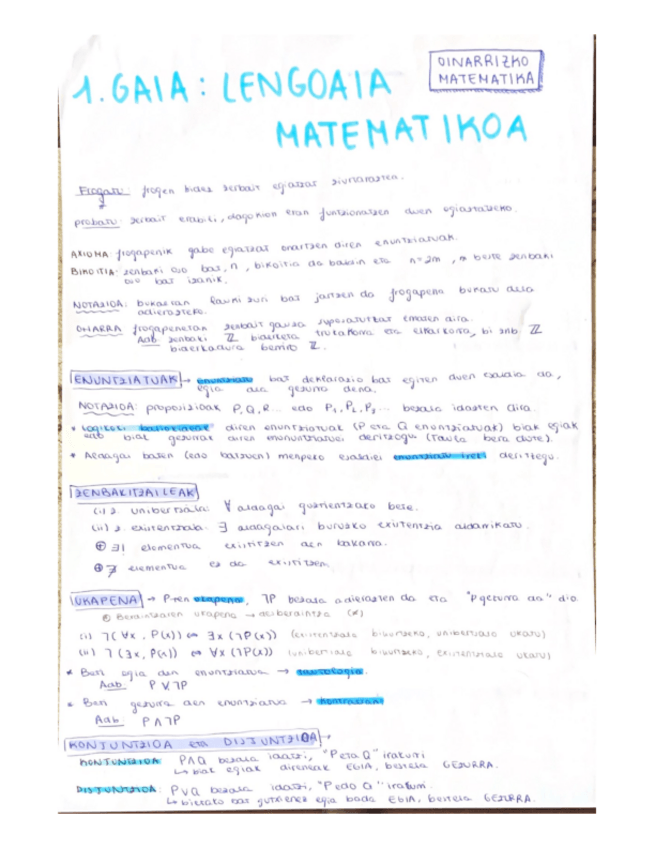 OINARRIZKO
MATEMATIKA
1. GAIA: LENGOAIA
MATEMATIKOA
Frogatu: frogen bidez zerbait egiatzat ziurtatzen.
probatu: zerbait erabili, dagokion eran funtzionatzen duen egiaztatzeko.
AXIOMA: frogapenik gabe egiatzat onartzen diren enuntziatuak.
BIKOITIA: zenbaki oso bat, n, bikoitia da baldin eta n=2m, m beste zenbaki
oso bat izanik.
NOTAZIOA: bukaeran lauki zuri bat jartzen da frogapena bukatu dela
adierazteko.
OHARRA frogapenetan zerbait gauza suposatutzat ematen dira.
Adb zenbaki ℤ biderketa trukakorra eta elkarkorra, bi znb ℤ
biderkadura berriro ℤ.
ENUNTZIATUAK → enuntziatu bat deklarazio bat egiten duen esaldia da,
egia ala gezurra dena.
NOTAZIOA: proposizioak P, Q, R... edo P₁, P₂, P₃... bezala idazten dira.
* Logikoki baliokideak diren enuntziatuak (P eta Q enuntziatuak) biak egiak
edo biak gezurrak diren enuntziatuei deritzogu (taula bera dute).
* Aldagai baten (edo batzuen) menpeko esaldiei enuntziatu ireki deritzegu.
ZENBAKITZAILEAK
(i) z. unibertsala: ∀ aldagai guztientzako bete.
(ii) z. existentziala: ∃ aldagaiari buruzko existentzia aldarrikatu.
⊕ ∃! elementua existitzen den bakarra.
⊕ ∄ elementua ez da existitzen.
UKAPENA → P-ren ukapena, ¬P bezala adierazten da eta "P gezurra da" dio
(i) ¬(∀x, P(x)) ⇔ ∃x (¬P(x)) (existentziala bihurtzeko, unibertsala ukatu)
(ii) ¬(∃x, P(x)) ⇔ ∀x (¬P(x)) (unibertsala bihurtzeko, existentziala ukatu)
* Beti egia den enuntziatua → tautologia.
Adb. P ∨ ¬P
* Beti gezurra den enuntziatua → kontraesana
Adb. P ∧ ¬P
KONJUNTZIOA eta DISJUNTZIOA →
KONJUNTZIOA P∧Q bezala idatzi, "P eta Q" irakurri
↳ biak egiak direneak EGIA, bestela GEZURRA.
DISJUNTZIOA: P∨Q bezala idatzi, "P edo Q" irakurri.
↳ bietako bat gutxienez egia bada EGIA, bestela GEZURRA.